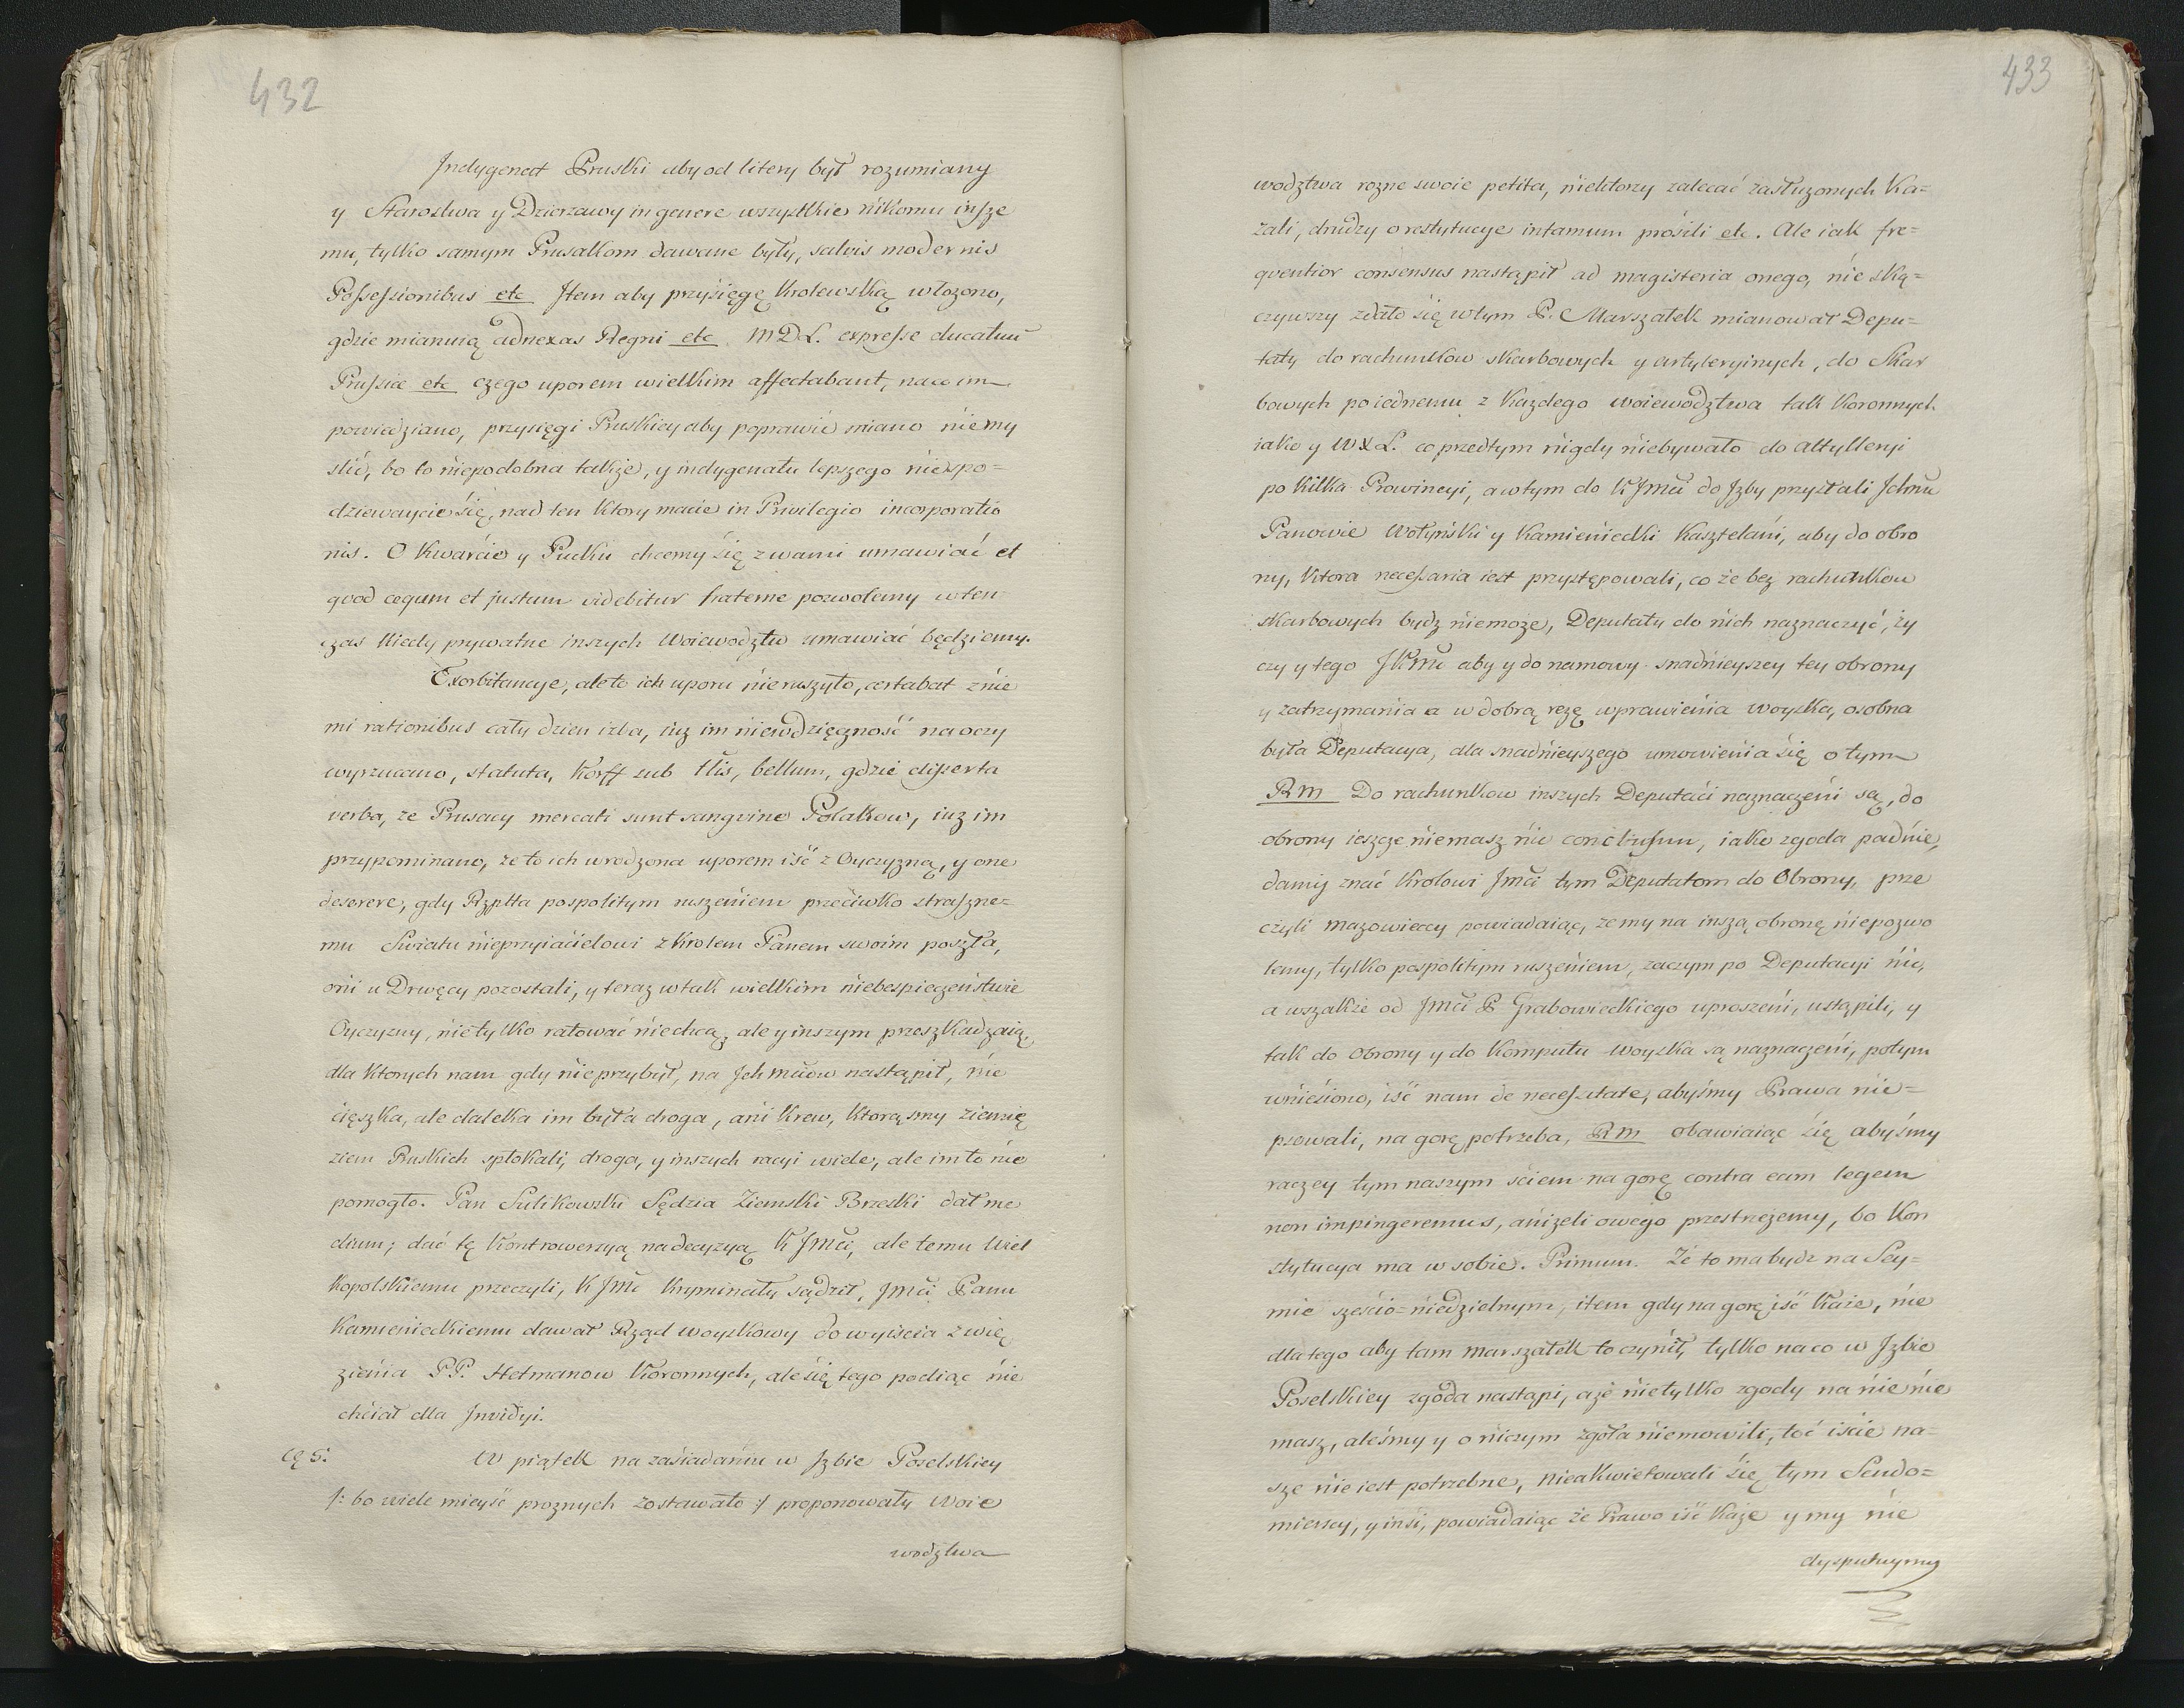 432
Indygenat Pruski aby od litery był rozumiany
y Starostwa y Dzierzawy in genere wszystkie nikomu insze
mu, tylko samym Prusakom dawane były, salvis modernis
Possessionibus etc Item aby przysięgę Krolewską włozono,
gdzie mianuią adnexas Regni etc MDL. expresse ducatuũ
Prussiae etc czego uporem wielkim affectabant, na co im
powiedziano, przysięgi Pruskiey aby poprawić miano niemy
slić, bo to niepodobna takze, y indygenatu lepszego niespo=
dziewaycie się, nad ten ktory macie in Privilegio incorporatio
nis. O Kwarcie y Pucku chcemy się z wami umawiać et
quod aequm et justum videbitur fraterne pozwolemy wten
czas kiedy prywatne inszych Woiewodztw umawiać będziemy.
Exorbitancye, ale to ich uporu nieruszyło, certabat znie
mi rationibus cały dzien izba, iuz im niewdzięczność na oczy
wyrzucano, statuta, Korff sub Ilis, bellum, gdzie disserta
verba, ze Prusacy mercati sunt sangvine Polakow, iuz im
przypominano, ze to ich wrodzona uporem iść z Oyczyzną, y one
deserere, gdy Rzplta pospolitym ruszeniem przeciwko straszne=
mu Swiatu nieprzyiacielowi z Krolem Panem swoim poszła,
oni u Drwęcy pozostali, y teraz w tak wielkim niebespieczeństwie
Oyczyzny, nietylko ratować niechcą, ale y inszym przeszkadzaią,
dla ktorych nam gdy nieprzybył, na Ichmciow nastąpił, nie
cięszka, ale daleka im była droga, ani krew, ktorąsmy ziemię
ziem Pruskich spłokali, droga, y inszych racyi wiele, ale im to nie
pomogło. Pan Sulikowski Sędzia Ziemski Brzeski dał me
dium; dać tę Kontrowersyą na decyzyą K Jmci, ale temu Wiel
kopolskiemu przeczyli, K Jmc Kryminały sądził, Jmci Panu
Kamienieckiemu dawał Rząd woyskowy do wyiścia z wię
zienia PP. Hetmanow Koronnych, ale się tego podiąc nie
chciał dla Invidyi.
W piątek na zasiadaniu w Izbie Poselskiey
/: bo wiele mieysć proznych zostawało :/ proponowały Woie
wodztwa
433
wodztwa rozne swoie petita, niektorzy zalecać zasłuzonych Ka=
zali, drudzy o restytucye infamum prosili etc. Ale iak fre=
quentior consensus nastąpił ad magisteria onego, nie ską=
czywszy zdało się w tym P. Marszałek mianował Depu=
taty do rachunkow skarbowych y artyleryinych, do Skar
bowych po iednemu z kazdego woiewodztwa tak Koronnych
iako y WXL. co przedtym nigdy niebywało do Attylleryi
po kilka Prowincyi, a wtym do K Jmci do Izby przysłali Ichmc
Panowie Wołyński y Kamieniecki Kasztelani, aby do obro
ny, ktora necessaria iest przystępowali, co że bez rachunkow
skarbowych bydz niemoze, Deputaty do nich naznaczyć, zy
czy y tego JKmc aby y do namowy snadnieyszey tey obrony
y zatrzymania a w dobrą rezę wprawienia woyska, osobna
była Deputacya, dla snadnieyszego umowienia się o tym
Rm Do rachunkow inszych Deputaci naznaczeni są, do
obrony ieszcze niemasz nic conclusum, iako zgoda padnie,
damy znać Krolowi Jmci tym Deputatom do Obrony, prze
czyli mazowieccy powiadaiąc, ze my na inszą obronę niepozwo
lemy, tylko pospolitym ruszeniem, zaczym po Deputacyi nic,
a wszakze od Jmci P Grabowieckiego uproszeni, ustąpili, y
tak do Obrony y do Komputu woyska są naznaczeni, potym
wniesiono, iść nam de necessitate, abyśmy Prawa nie=
psowali, na gorę potrzeba, Rm obawiaiąc się abyśmy
raczey tym naszym sciem na gorę contra eam legem
non impingeremus, anizeli owego przestrzezemy, bo Kon
stytucya ma w sobie. Primum. Że to ma bydz na Sey=
mie sześcio=niedzielnym, item gdy na gorę iść kaze, nie
dlatego aby tam marszałek to czynił, tylko na co w Izbie
Poselskiey zgoda nastąpi, aże nietylko zgody na nie nie
masz, aleśmy y o niczym zgoła niemowili, toć iście na=
sze nie iest potrzebne, nieakwietowali się tym Sendo=
mierscy, y insi, powiadaiąc że Prawo iść kaze y my nie
dysputuymy